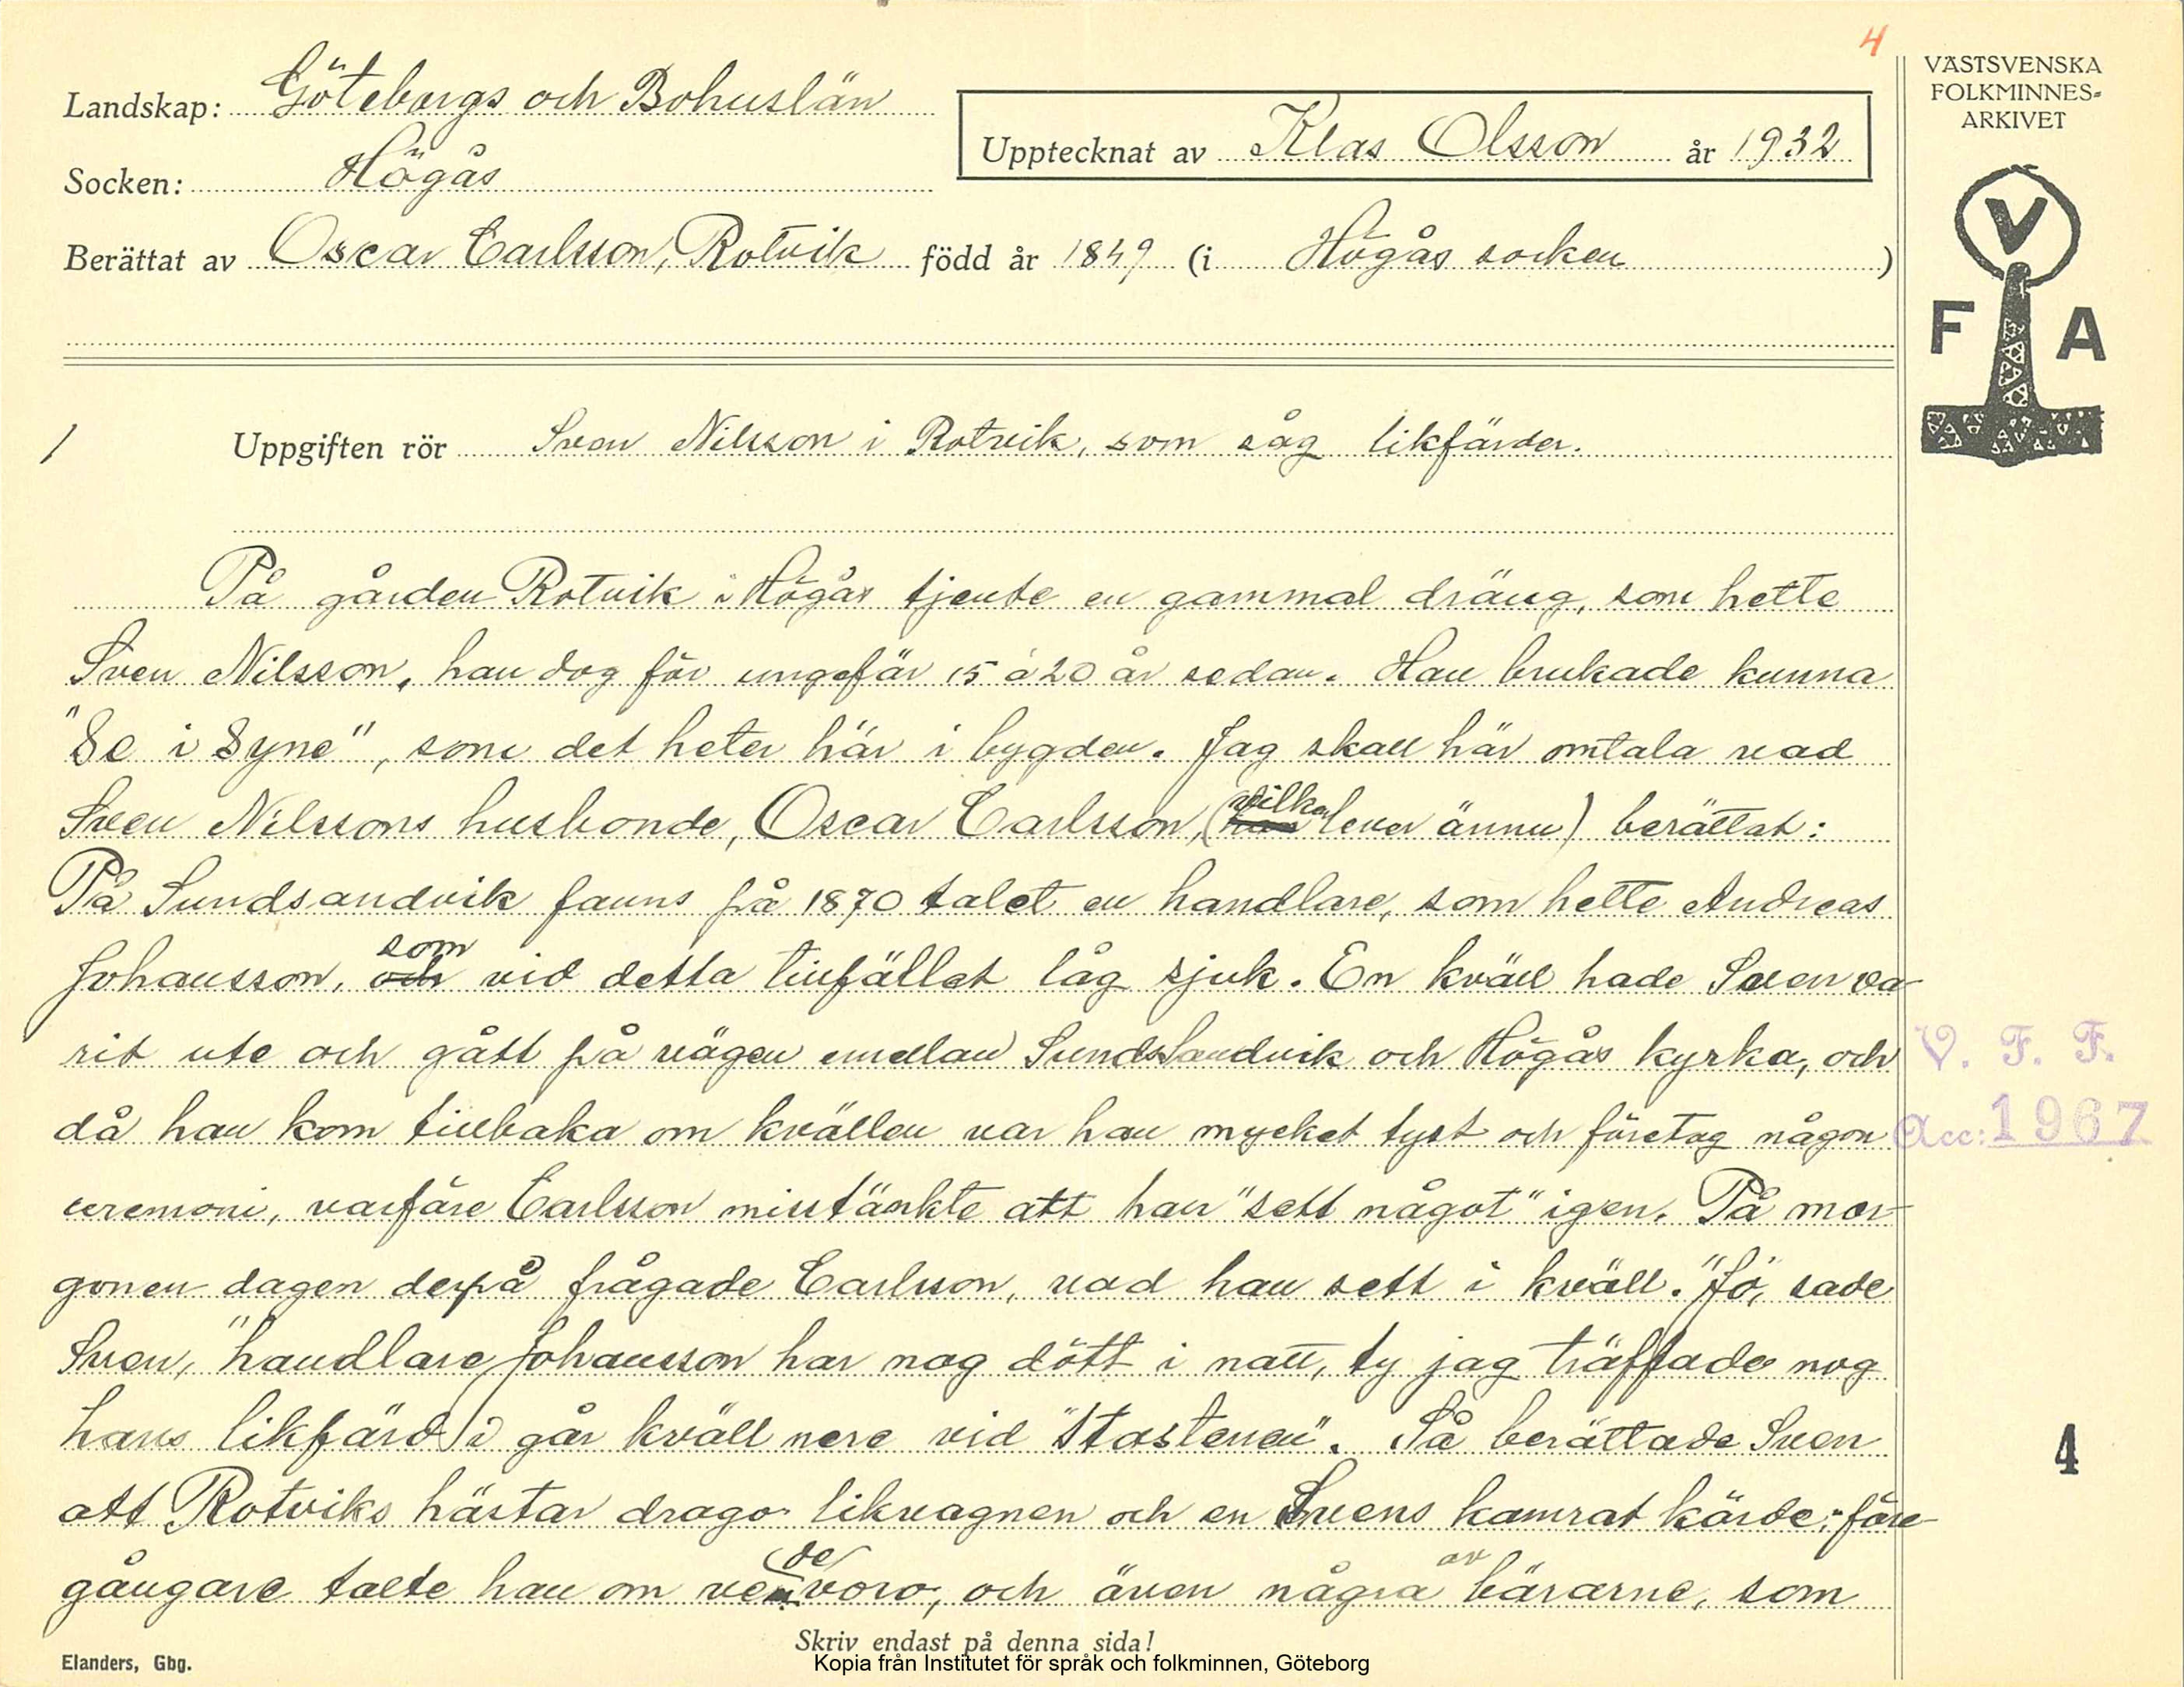 4
VÄSTSVENSKA
FOLKMINNES-
ARKIVET
Landskap: Göteborgs och Bohuslän
Upptecknat av Klas Olsson år 1932
Socken: Högås
Berättat av Oscar Carlsson, Rotvik född år 1849 (i Högås socken)
V
F A
1 Uppgiften rör Sven Nilsson i Rotvik, som såg likfärder.
På gården Rotvik i Högås tjente en gammal dräng, som hette
Sven Nilsson, han dog för ungefär 15 à 20 år sedan. Han brukade kunna
"Se i Syne", som det heter här i bygden. Jag skall här omtala vad
Sven Nilssons husbonde, Oscar Carlsson, (vilken lever ännu) berättat:
På Sundsandvik fanns på 1870 talet en handlare, som hette Andreas
Johansson, som vid detta tillfället låg sjuk. En kväll hade Sven va-
rit ute och gått på vägen emellan SundsSandvik och Högås kyrka, och
då han kom tillbaka om kvällen var han mycket tyst och företog någon
ceremoni, varföre Carlsson misstänkte att han "sett något" igen. På mor-
gonen dagen derpå frågade Carlsson, vad han sett i kväll. "Jo", sade
Sven, "handlare Johansson har nog dött i natt, ty jag träffade nog
hans likfärd i går kväll nere vid "Stastenen". Så berättade Sven
att Rotviks hästar drogo likvagnen och en Svens kamrat körde; före-
gångare talte han om vem de voro, och även några av bärarne, som
V. F. F.
Acc: 1967
4
Skriv endast på denna sida!
Elanders, Gbg.
Kopia från Institutet för språk och folkminnen, Göteborg